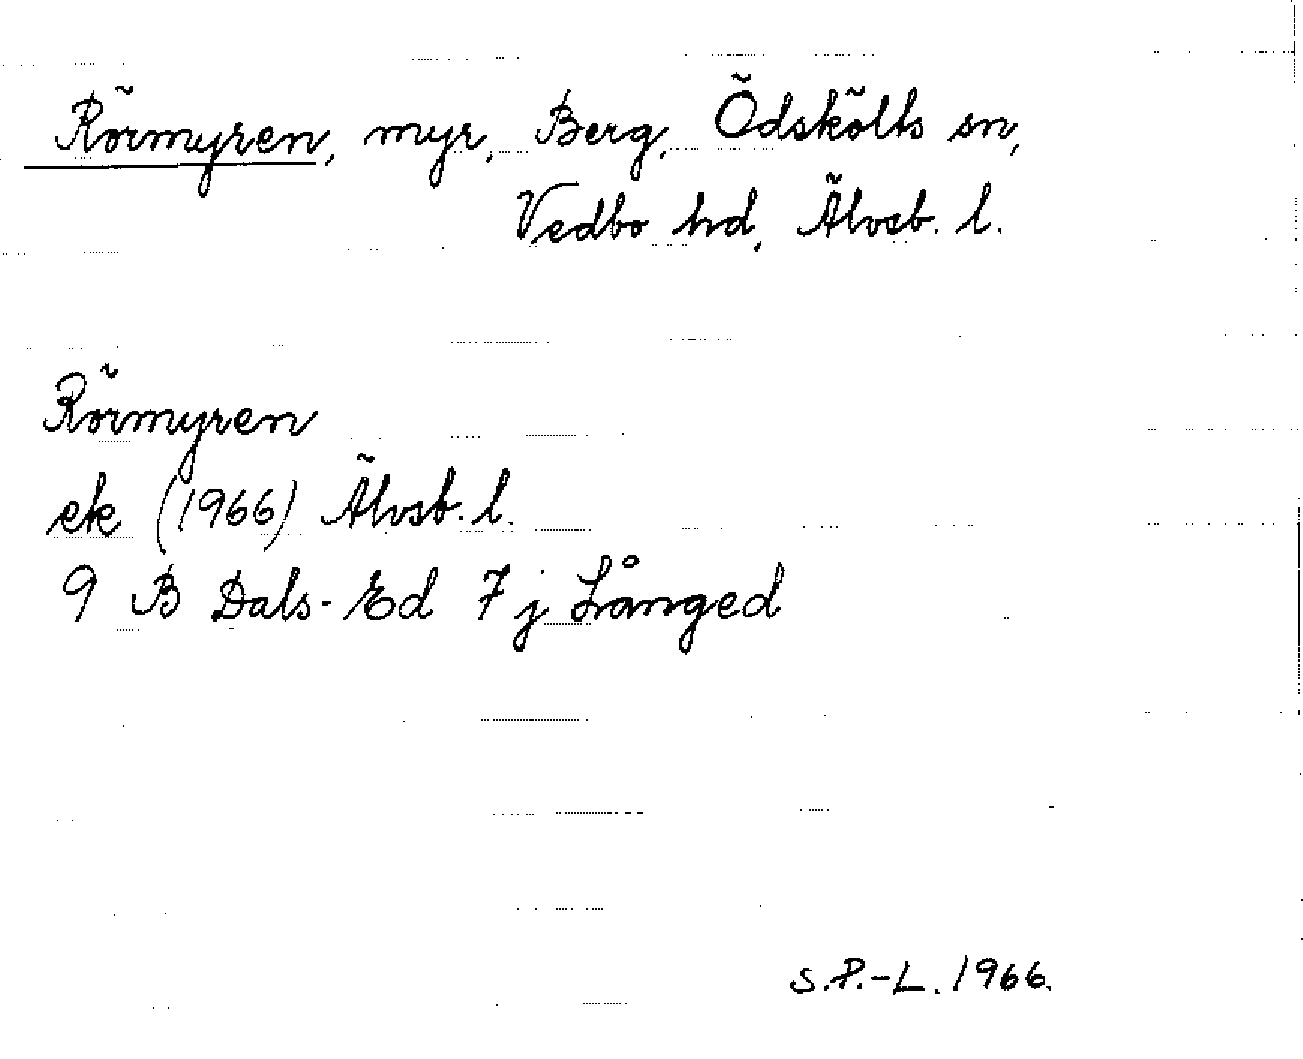 Rörmyren, myr, Berg, Ödskölts sn,
Vedbo hd, Älvsb. l.
Rörmyren
ek (1966) Älvsb. l.
9 B Dals-Ed 7 j Långed
S.P.-L. 1966.